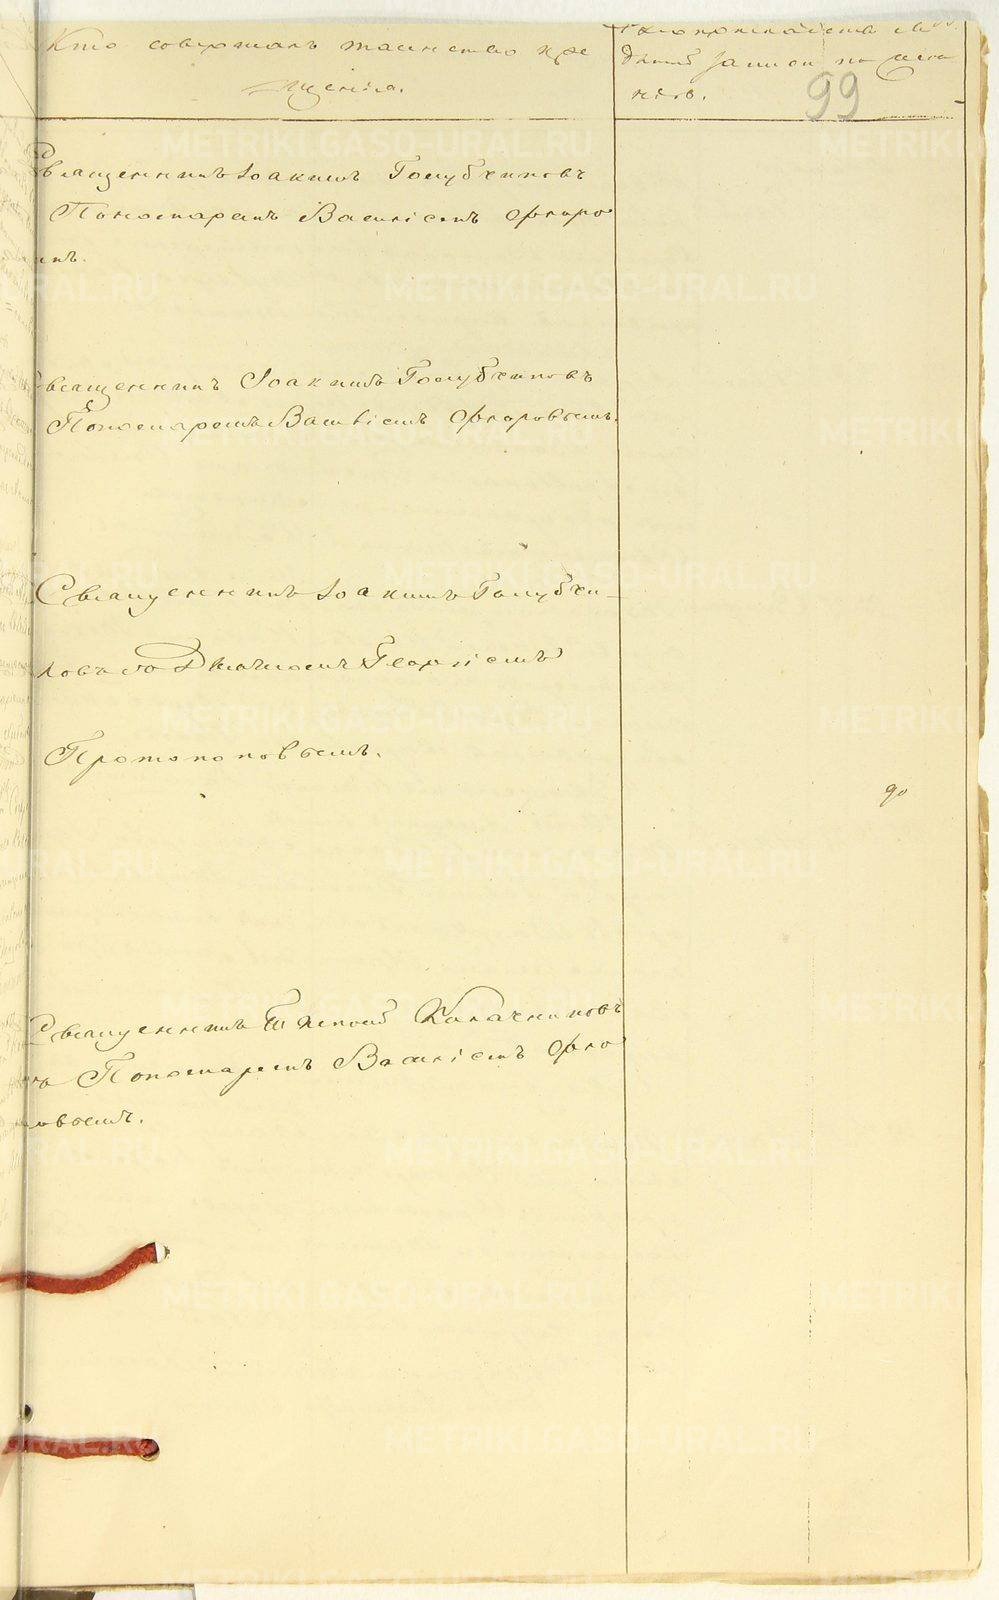 Кто совершалъ таинство кре
щенія.
Рукоприкладство сви
дѣтелей записи по жела
нію.
99
Священникъ Іоакимъ Голубчиковъ
Пономаремъ Василіемъ Флоро
мъ.
Священникъ Іоакимъ Голубчиковъ
с Пономаремъ Василіемъ Флоровымъ.
Священникъ Іоакимъ Голубчи
ковъ со Дьячкомъ Георгіемъ
Протопоповымъ.
90
Священникъ Калачниковъ
Пономаремъ Василіемъ Фло
ровымъ.
METRIKI.GASO-URAL.RU